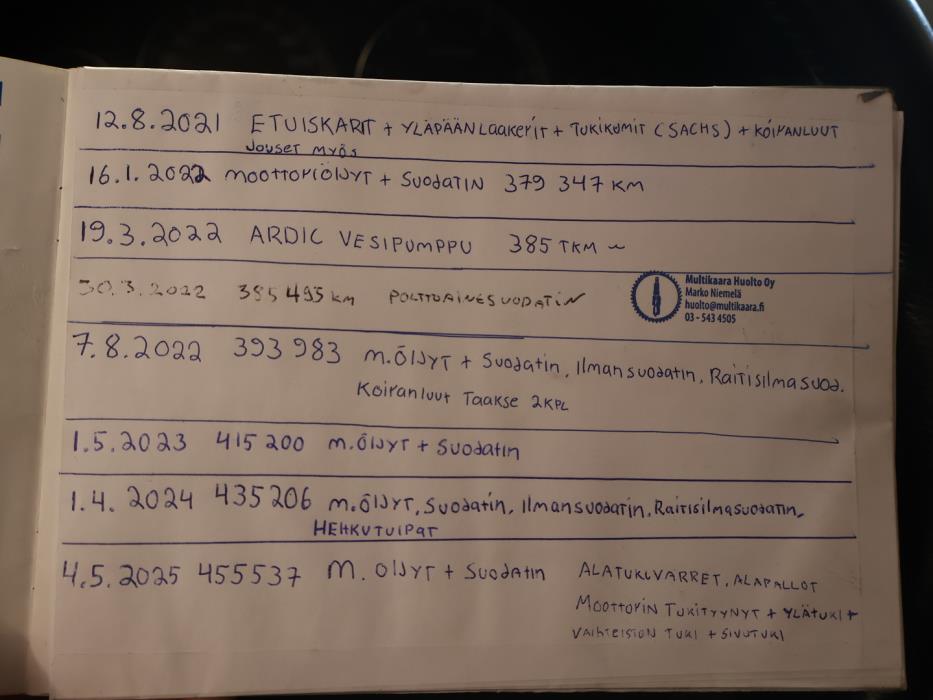 12.8.2021 ETUISKARIT + YLÄPÄÄNLAAKERIT + TUKIKUMIT (SACHS) + KOIRANLUUT
JOUSET MYÖS
16.1.2022 MOOTTORIÖLJYT + SUODATIN 379 347 KM
19.3.2022 ARDIC VESIPUMPPU 385 TKM ~
30.3.2022 385 495 KM POLTTOAINESUODATIN
Multikaara Huolto Oy
Marko Niemelä
huolto@multikaara.fi
03 - 543 4505
7.8.2022 393 983 M.ÖLJYT + SUODATIN, ILMANSUODATIN, RAITISILMASUOD.
KOIRANLUUT TAAKSE 2KPL
1.5.2023 415 200 M.ÖLJYT + SUODATIN
1.4.2024 435206 M.ÖLJYT, SUODATIN, ILMANSUODATIN, RAITISILMASUODATIN,
HEHKUTULPAT
4.5.2025 455537 M. ÖLJYT + SUODATIN ALATUKIVARRET, ALAPALLOT
MOOTTORIN TUKITYYNYT + YLÄTUKI +
VAIHTEISTON TUKI + SIVUTUKI